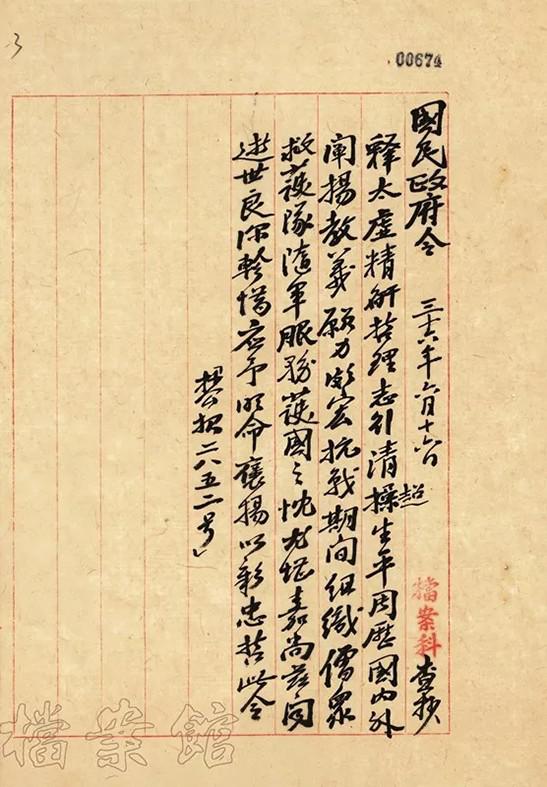 00674
3
國民政府令 三十六年六月十六日
檔案科查抄
超
釋太虛精研哲理志行清操生平周歷國內外
闡揚教義願力頗宏抗戰期間組織僧眾
救護隊隨軍服務護國之忱尤堪嘉尚茲聞
逝世良深軫惜應予明令褒揚以彰忠哲此令
公報二八五二号」
檔案館